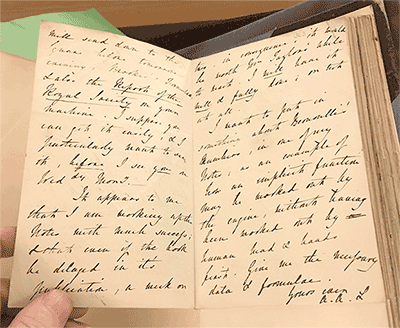 will send down to the
Square before tomorrow
evening, Brooke's Formulae,
& also the Report of the
Royal Society on your
machine. I suppose you
can get it easily, & I
particularly want to see
it, before I see you on
Wedy Morng.
It appears to me
that I am working up the
Notes with much success;
& that even if the book
be delayed in its
publication, a week or
two, in consequence, it would
be worth Mr Taylor's while
to wait. I will have it
well & fully done; or not
at all.
I want to put in
something about Bernoulli's
Numbers, in one of my
Notes, as an example of
how an implicit function
may be worked out by
the engine, without having
been worked out by
human head & hands
first. Give me the necessary
data & formulae.
Yours ever
A.A.L